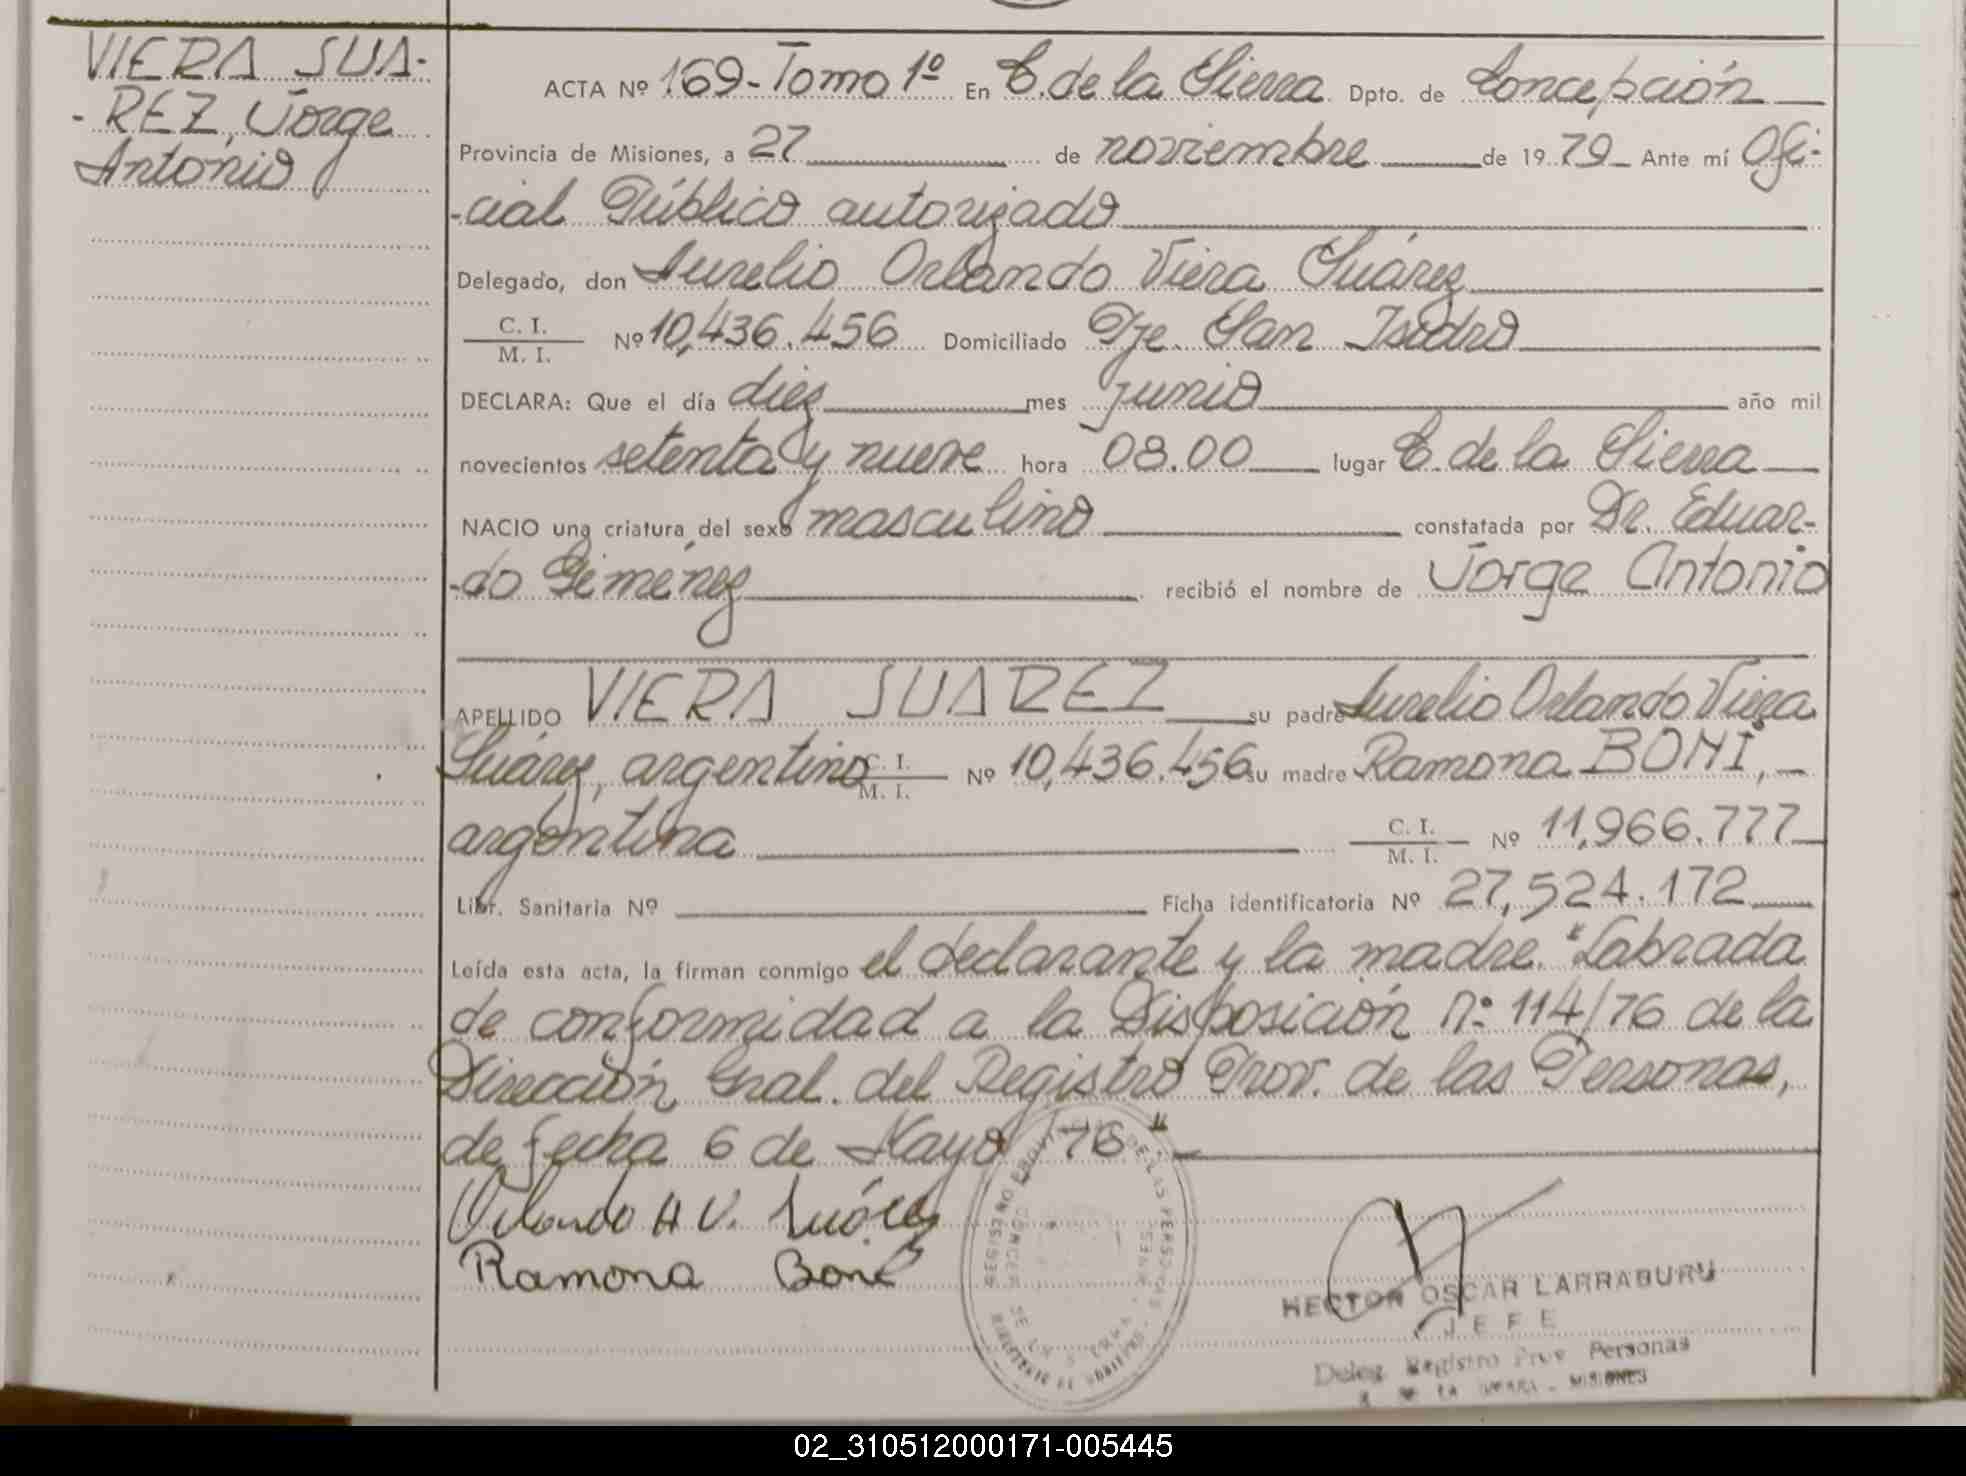 VIERA SUA-
-REZ, Jorge
Antonio
ACTA Nº 169-Tomo 1º En C. de la Sierra Dpto. de Concepción
Provincia de Misiones, a 27 de noviembre de 1979 Ante mí Ofi-
-cial Público autorizado
Delegado, don Aurelio Orlando Viera Suárez
C. I.
M. I. Nº 10,436.456 Domiciliado Pje. San Isidro
DECLARA: Que el día diez mes junio año mil
novecientos setenta y nueve hora 08.00 lugar C. de la Sierra
NACIO una criatura del sexo masculino constatada por Dr. Eduar-
-do Giménez recibió el nombre de Jorge Antonio
APELLIDO VIERA SUAREZ su padre Aurelio Orlando Viera
Suárez, argentino C. I. M. I. Nº 10,436.456 su madre Ramona BONI,
argentina C. I. M. I. Nº 11,966.777
Libr. Sanitaria Nº Ficha identificatoria Nº 27,524.172
Leída esta acta, la firman conmigo el declarante y la madre. "Labrada
de conformidad a la Disposición nº 114/76 de la
Dirección Gral. del Registro Prov. de las Personas,
de fecha 6 de Mayo 76"
Orlando A V. Suárez
Ramona Boni
REGISTRO PROVINCIAL DE LAS PERSONAS
HECTOR OSCAR LARRABURU
JEFE
Deleg. Registro Prov. Personas
DE LA SIERRA - MISIONES
02_310512000171-005445